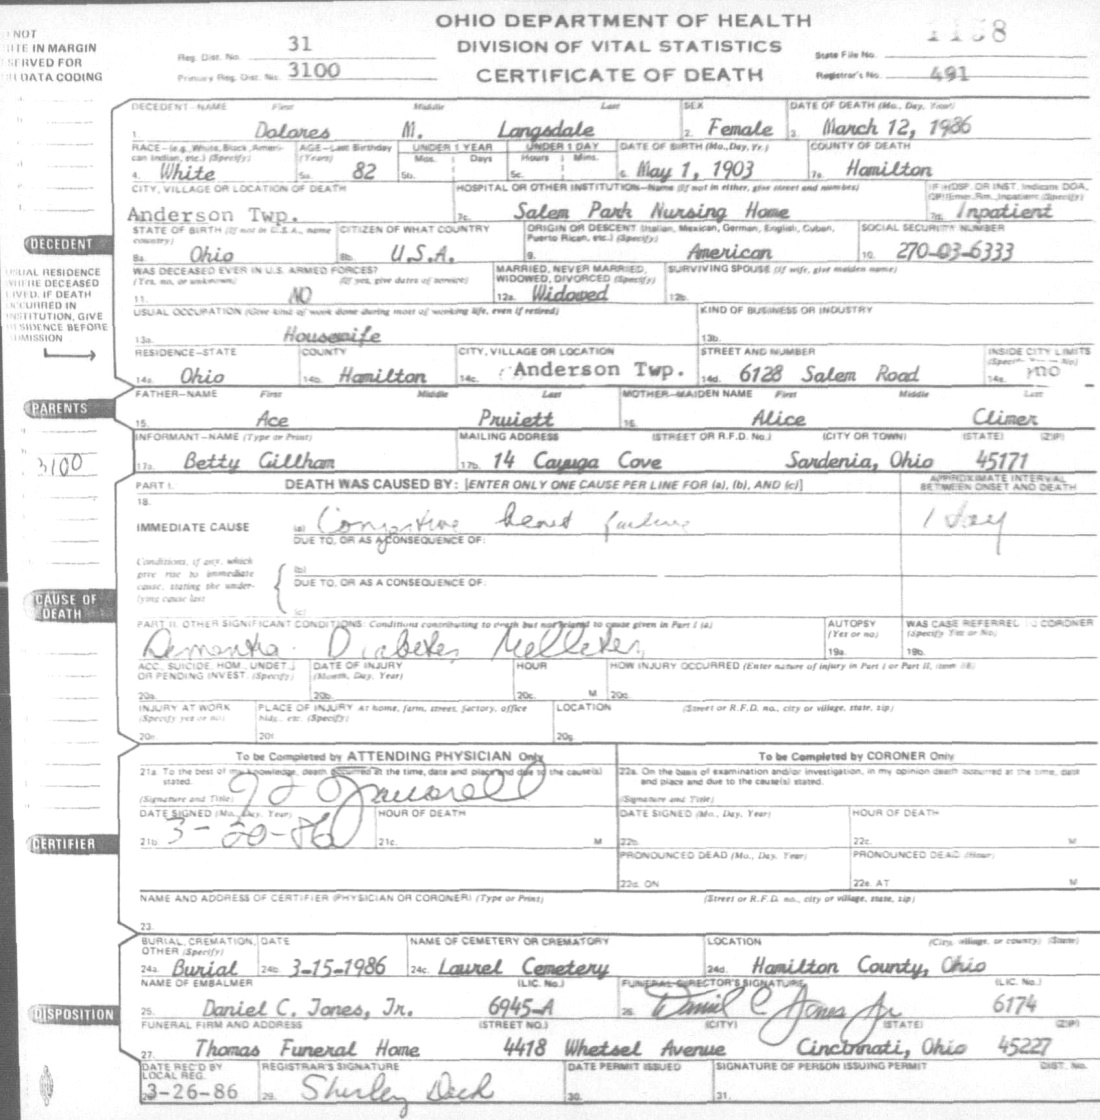 OHIO DEPARTMENT OF HEALTH
DIVISION OF VITAL STATISTICS
CERTIFICATE OF DEATH
NOT
IN MARGIN
FOR
DATA CODING
Reg. Dist. No. 31
Primary Reg. Dist. No. 3100
State File No.
Registrar's No. 491
DECEDENT—NAME First Middle Last SEX DATE OF DEATH (Mo., Day, Year)
1. Dolores M. Langsdale 2. Female 3. March 12, 1986
RACE—(e.g., White, Black, American Indian, etc.) (Specify) AGE—Last Birthday (Years) UNDER 1 YEAR Mos. Days UNDER 1 DAY Hours Mins. DATE OF BIRTH (Mo., Day, Yr.) COUNTY OF DEATH
4. White 5a. 82 5b. 5c. 6. May 1, 1903 7a. Hamilton
CITY, VILLAGE OR LOCATION OF DEATH HOSPITAL OR OTHER INSTITUTION—Name (If not in either, give street and number) IF HOSP. OR INST. Indicate DOA, OP/Emer. Rm., Inpatient (Specify)
Anderson Twp. 7c. Salem Park Nursing Home 7d. Inpatient
DECEDENT
STATE OF BIRTH (If not in U.S.A., name country) CITIZEN OF WHAT COUNTRY ORIGIN OR DESCENT (Italian, Mexican, German, English, Cuban, Puerto Rican, etc.) (Specify) SOCIAL SECURITY NUMBER
8a. Ohio 8b. U.S.A. 9. American 10. 270-03-6333
USUAL RESIDENCE
WHERE DECEASED
LIVED. IF DEATH
OCCURRED IN
INSTITUTION, GIVE
RESIDENCE BEFORE
ADMISSION
WAS DECEASED EVER IN U.S. ARMED FORCES? (Yes, no, or unknown) (If yes, give dates of service) MARRIED, NEVER MARRIED, WIDOWED, DIVORCED (Specify) SURVIVING SPOUSE (If wife, give maiden name)
11. NO 12a. Widowed 12b.
USUAL OCCUPATION (Give kind of work done during most of working life, even if retired) KIND OF BUSINESS OR INDUSTRY
13a. Housewife 13b.
RESIDENCE—STATE COUNTY CITY, VILLAGE OR LOCATION STREET AND NUMBER INSIDE CITY LIMITS
14a. Ohio 14b. Hamilton 14c. Anderson Twp. 14d. 6128 Salem Road 14e. no
PARENTS
FATHER—NAME First Middle Last MOTHER—MAIDEN NAME First Middle Last
15. Ace Pruiett 16. Alice Climer
INFORMANT—NAME (Type or Print) MAILING ADDRESS (STREET OR R.F.D. No.) (CITY OR TOWN) (STATE) (ZIP)
3100
17a. Betty Gillham 17b. 14 Cayuga Cove Sardenia, Ohio 45171
PART I. DEATH WAS CAUSED BY: [ENTER ONLY ONE CAUSE PER LINE FOR (a), (b), AND (c)] APPROXIMATE INTERVAL BETWEEN ONSET AND DEATH
18.
IMMEDIATE CAUSE (a) Congestive heart failure 1 day
DUE TO, OR AS A CONSEQUENCE OF:
Conditions, if any, which give rise to immediate cause, stating the underlying cause last
(b)
DUE TO, OR AS A CONSEQUENCE OF:
(c)
CAUSE OF DEATH
PART II. OTHER SIGNIFICANT CONDITIONS: Conditions contributing to death but not related to cause given in Part I (a) AUTOPSY (Yes or no) WAS CASE REFERRED TO CORONER (Specify Yes or No)
Dementia. Diabetes Melletes 19a. 19b.
ACC., SUICIDE, HOM., UNDET., OR PENDING INVEST. (Specify) DATE OF INJURY (Month, Day, Year) HOUR HOW INJURY OCCURRED (Enter nature of injury in Part I or Part II, item 18)
20a. 20b. 20c. M 20d.
INJURY AT WORK (Specify yes or no) PLACE OF INJURY At home, farm, street, factory, office bldg., etc. (Specify) LOCATION (Street or R.F.D. no., city or village, state, zip)
20e. 20f. 20g.
To be Completed by ATTENDING PHYSICIAN Only To be Completed by CORONER Only
21a. To the best of my knowledge, death occurred at the time, date and place and due to the cause(s) stated. 22a. On the basis of examination and/or investigation, in my opinion death occurred at the time, date and place and due to the cause(s) stated.
(Signature and Title) (Signature and Title)
DATE SIGNED (Mo., Day, Year) HOUR OF DEATH DATE SIGNED (Mo., Day, Year) HOUR OF DEATH
21b. 3-20-86 21c. M 22b. 22c. M
CERTIFIER
PRONOUNCED DEAD (Mo., Day, Year) PRONOUNCED DEAD (Hour)
22d. ON 22e. AT M
NAME AND ADDRESS OF CERTIFIER (PHYSICIAN OR CORONER) (Type or Print) (Street or R.F.D. no., city or village, state, zip)
23.
BURIAL, CREMATION, OTHER (Specify) DATE NAME OF CEMETERY OR CREMATORY LOCATION (City, village, or county) (State)
24a. Burial 24b. 3-15-1986 24c. Laurel Cemetery 24d. Hamilton County, Ohio
NAME OF EMBALMER (LIC. No.) FUNERAL DIRECTOR'S SIGNATURE (LIC. No.)
25. Daniel C. Jones, Jr. 6945-A 26. Daniel C Jones Jr 6174
DISPOSITION
FUNERAL FIRM AND ADDRESS (STREET NO.) (CITY) (STATE) (ZIP)
27. Thomas Funeral Home 4418 Whetsel Avenue Cincinnati, Ohio 45227
DATE REC'D BY LOCAL REG. REGISTRAR'S SIGNATURE DATE PERMIT ISSUED SIGNATURE OF PERSON ISSUING PERMIT DIST. No.
3-26-86 29. Shirley Deck 30. 31.